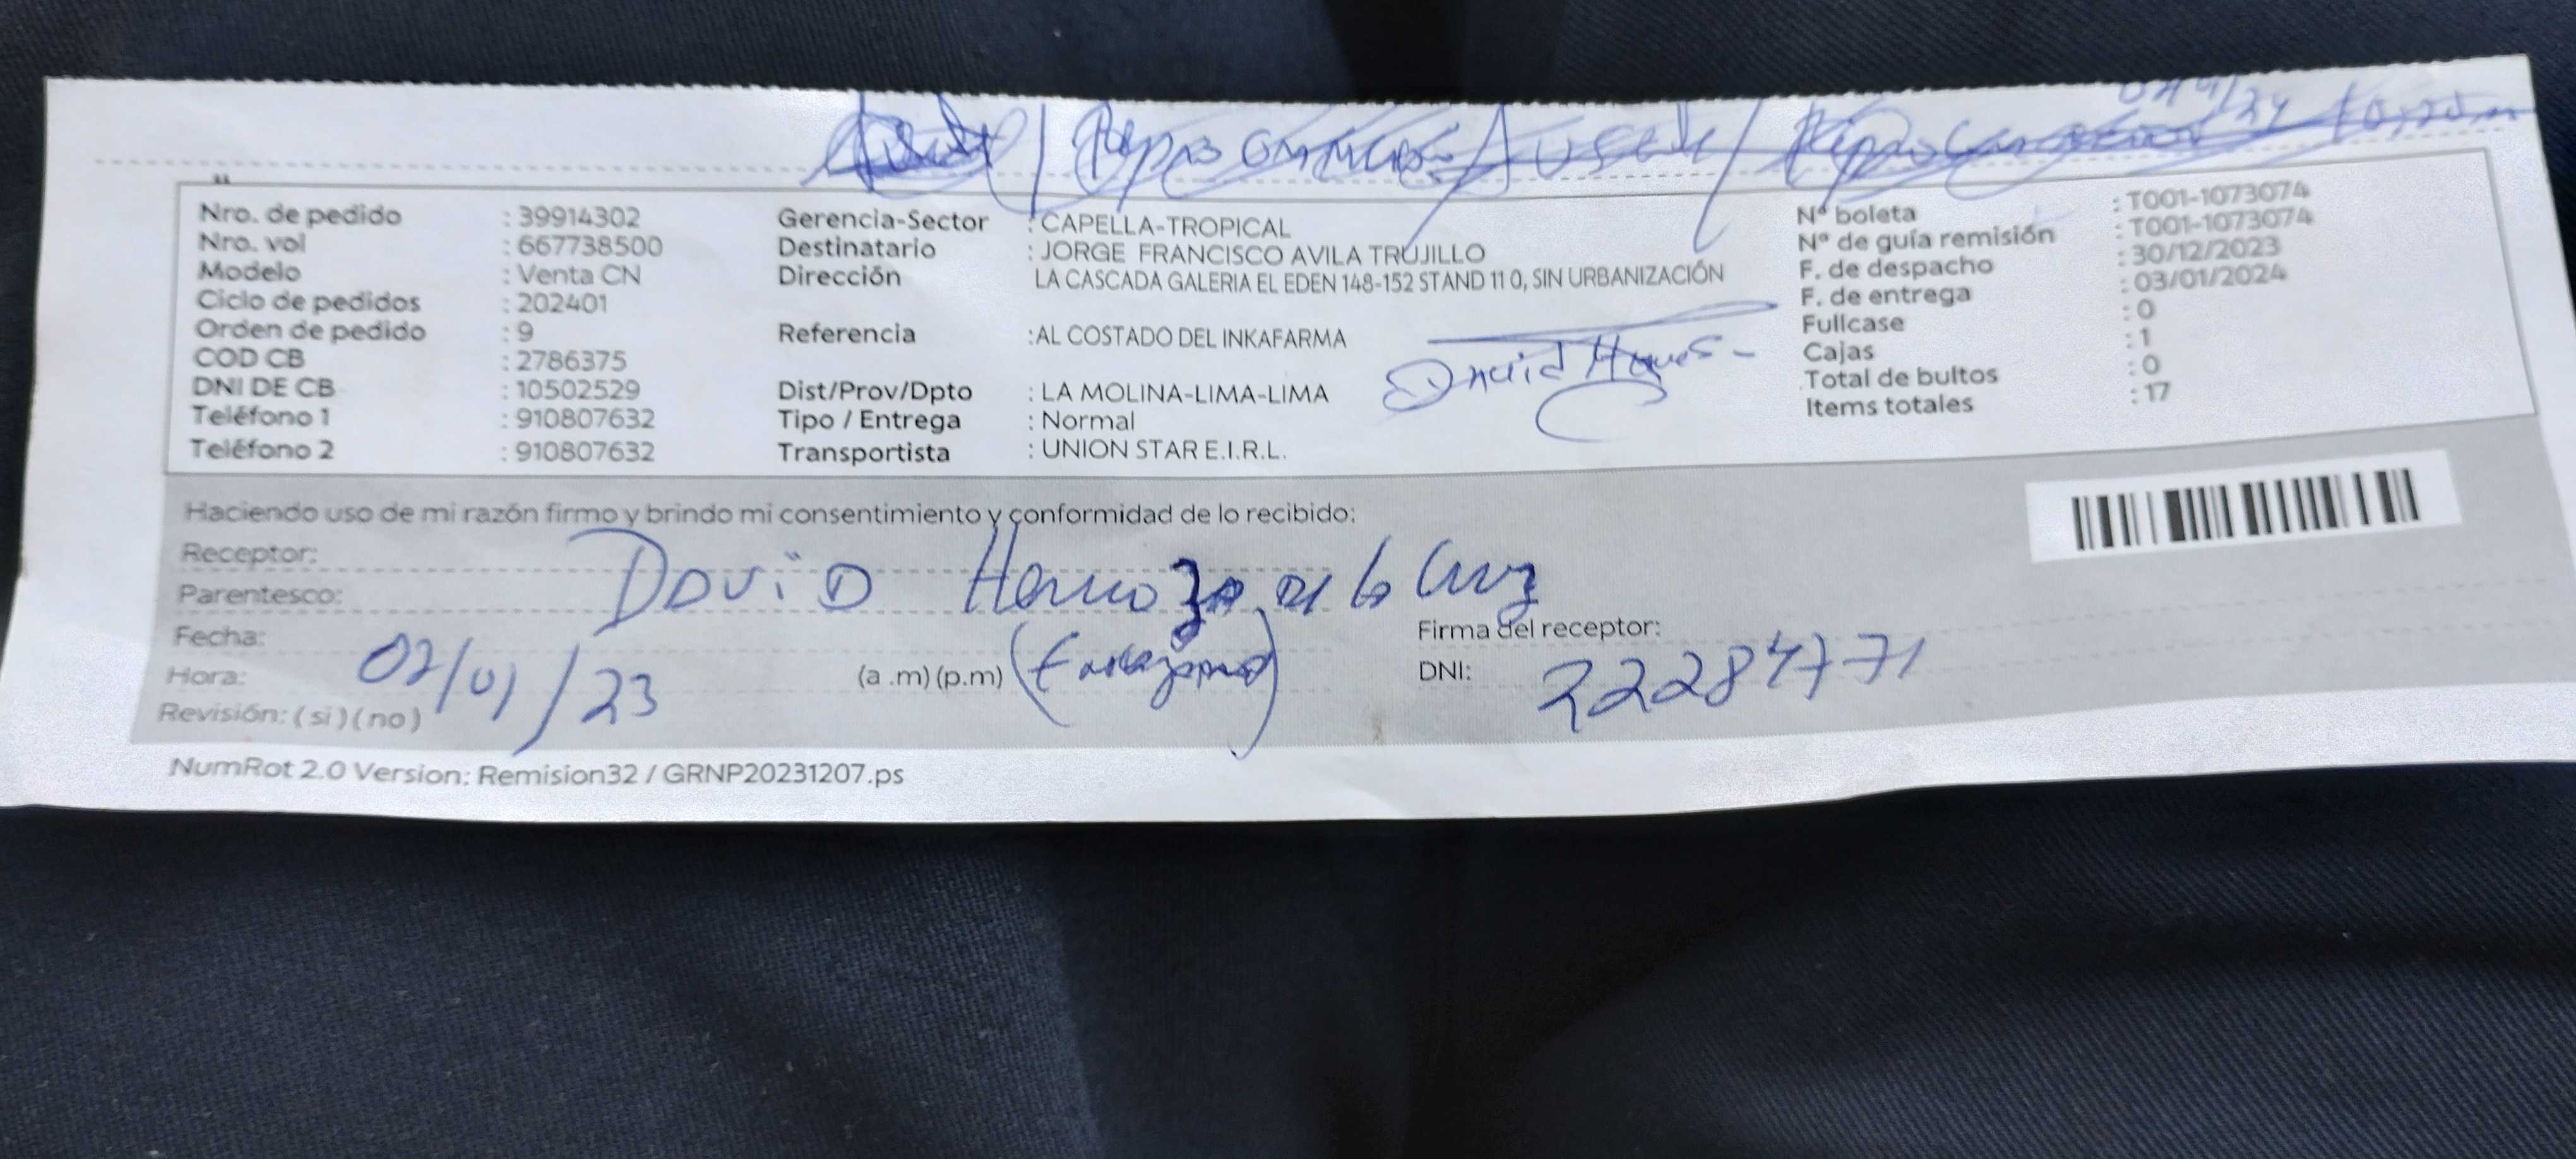 Nro. de pedido : 39914302
Nro. vol : 667738500
Modelo : Venta CN
Ciclo de pedidos : 202401
Orden de pedido : 9
COD CB : 2786375
DNI DE CB : 10502529
Teléfono 1 : 910807632
Teléfono 2 : 910807632
Gerencia-Sector : CAPELLA-TROPICAL
Destinatario : JORGE FRANCISCO AVILA TRUJILLO
Dirección LA CASCADA GALERIA EL EDEN 148-152 STAND 11 0, SIN URBANIZACIÓN
Referencia : AL COSTADO DEL INKAFARMA
Dist/Prov/Dpto : LA MOLINA-LIMA-LIMA
Tipo / Entrega : Normal
Transportista : UNION STAR E.I.R.L.
N° boleta : T001-1073074
N° de guía remisión : T001-1073074
F. de despacho : 30/12/2023
F. de entrega : 03/01/2024
Fullcase : 0
Cajas : 1
Total de bultos : 0
Items totales : 17
David
Haciendo uso de mi razón firmo y brindo mi consentimiento y conformidad de lo recibido:
Receptor:
DaviD Hermoza de la Cruz
Parentesco:
Fecha: 02/01/23
Firma del receptor:
Hora: (a .m) (p.m)
DNI: 22284771
Revisión: ( si ) ( no )
NumRot 2.0 Version: Remision32 / GRNP20231207.ps